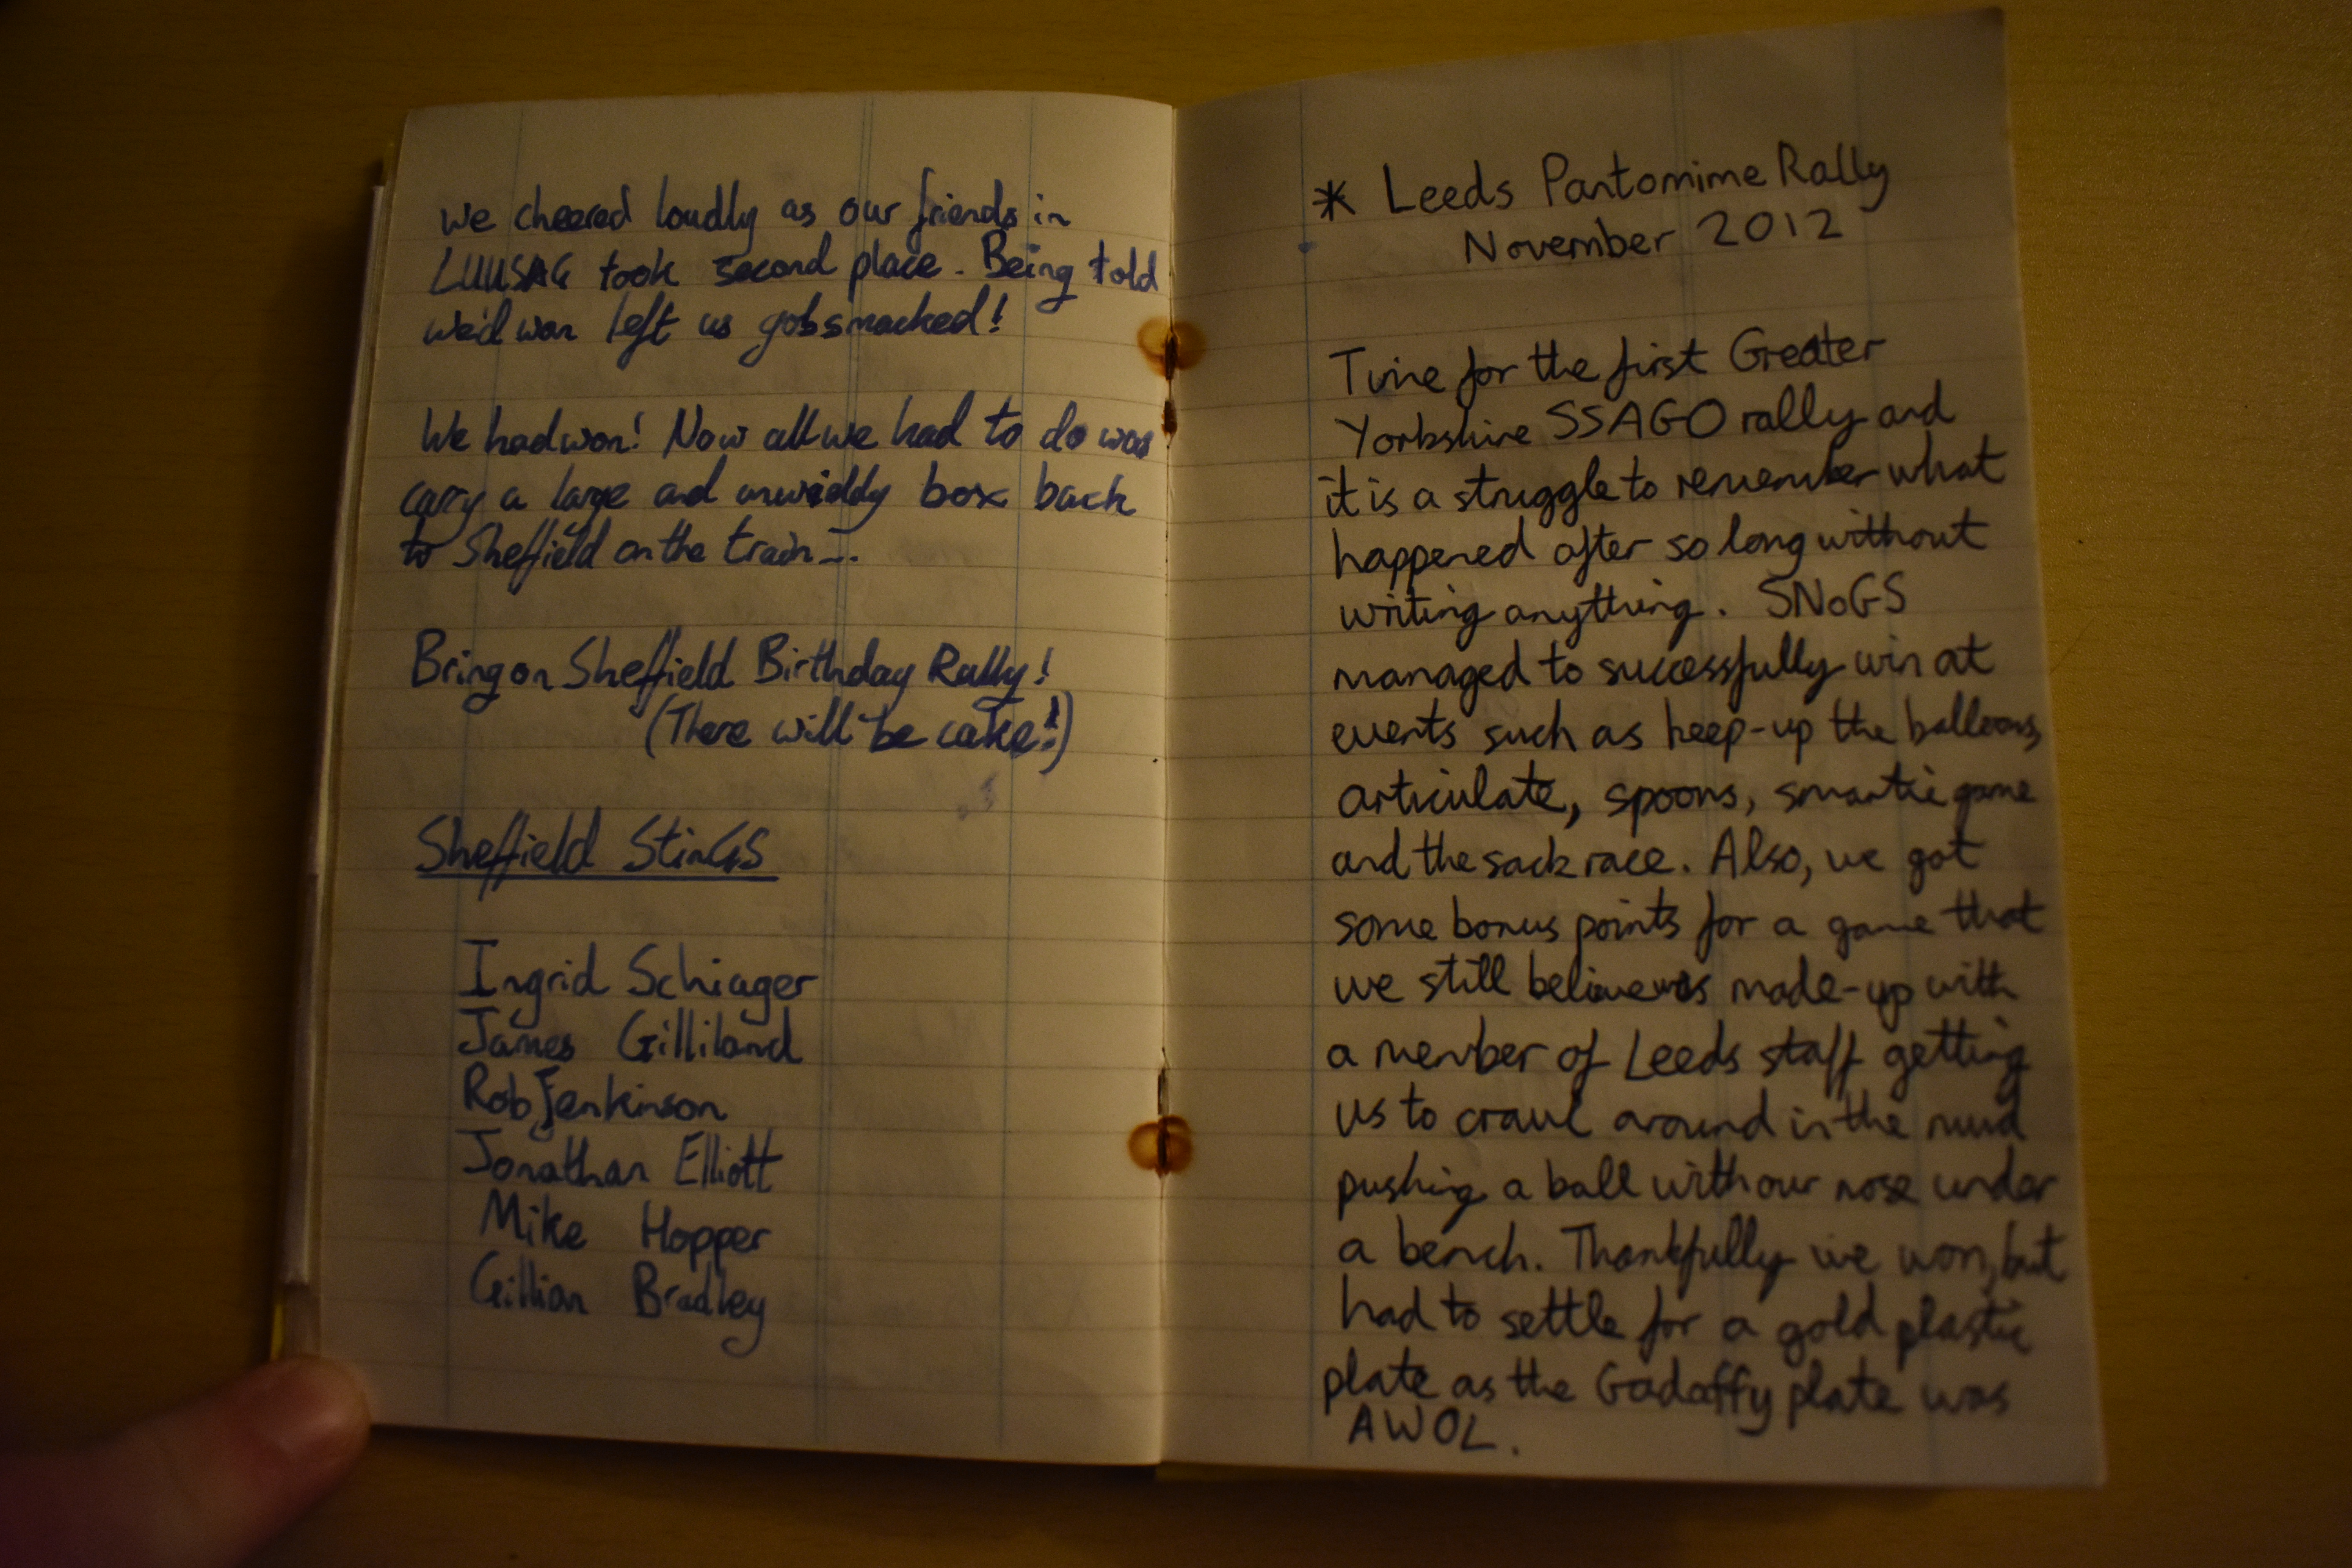 we cheered loudly as our friends in
LUUSAG took second place. Being told
we'd won left us gobsmacked!
We had won! Now all we had to do was
carry a large and unwieldy box back
to Sheffield on the train...
Bring on Sheffield Birthday Rally!
(There will be cake!)
Sheffield StinGS
Ingrid Schiager
James Gilliland
Rob Jenkinson
Jonathan Elliott
Mike Hopper
Gillian Bradley
* Leeds Pantomime Rally
November 2012
Time for the first Greater
Yorkshire SSAGO rally and
it is a struggle to remember what
happened after so long without
writing anything. SNoGS
managed to successfully win at
events such as keep-up the balloons,
articulate, spoons, smartie game
and the sack race. Also, we got
some bonus points for a game that
we still believe was made-up with
a member of Leeds staff getting
us to crawl around in the mud
pushing a ball with our nose under
a bench. Thankfully we won, but
had to settle for a gold plastic
plate as the Gadaffy plate was
AWOL.